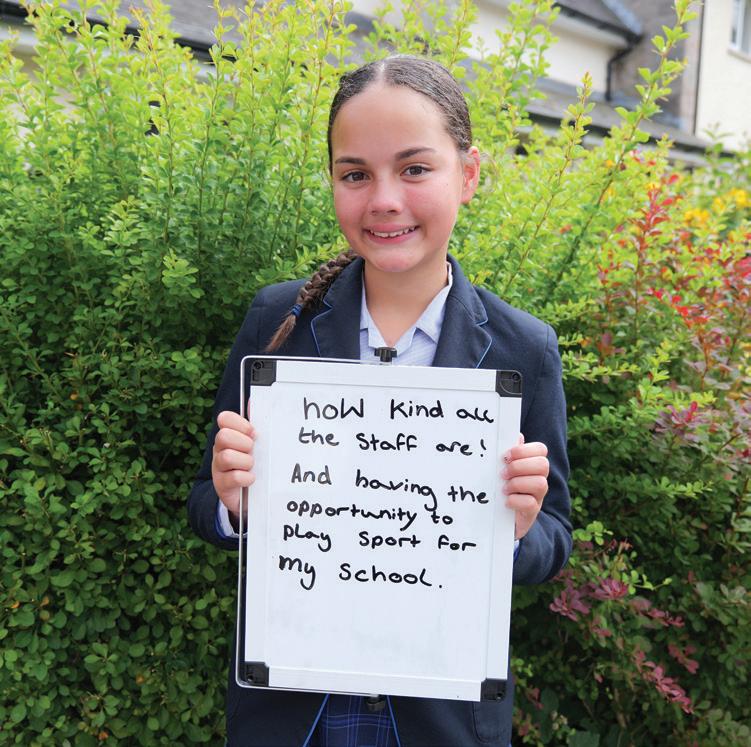 how kind all
the staff are!
And having the
opportunity to
play sport for
my school.